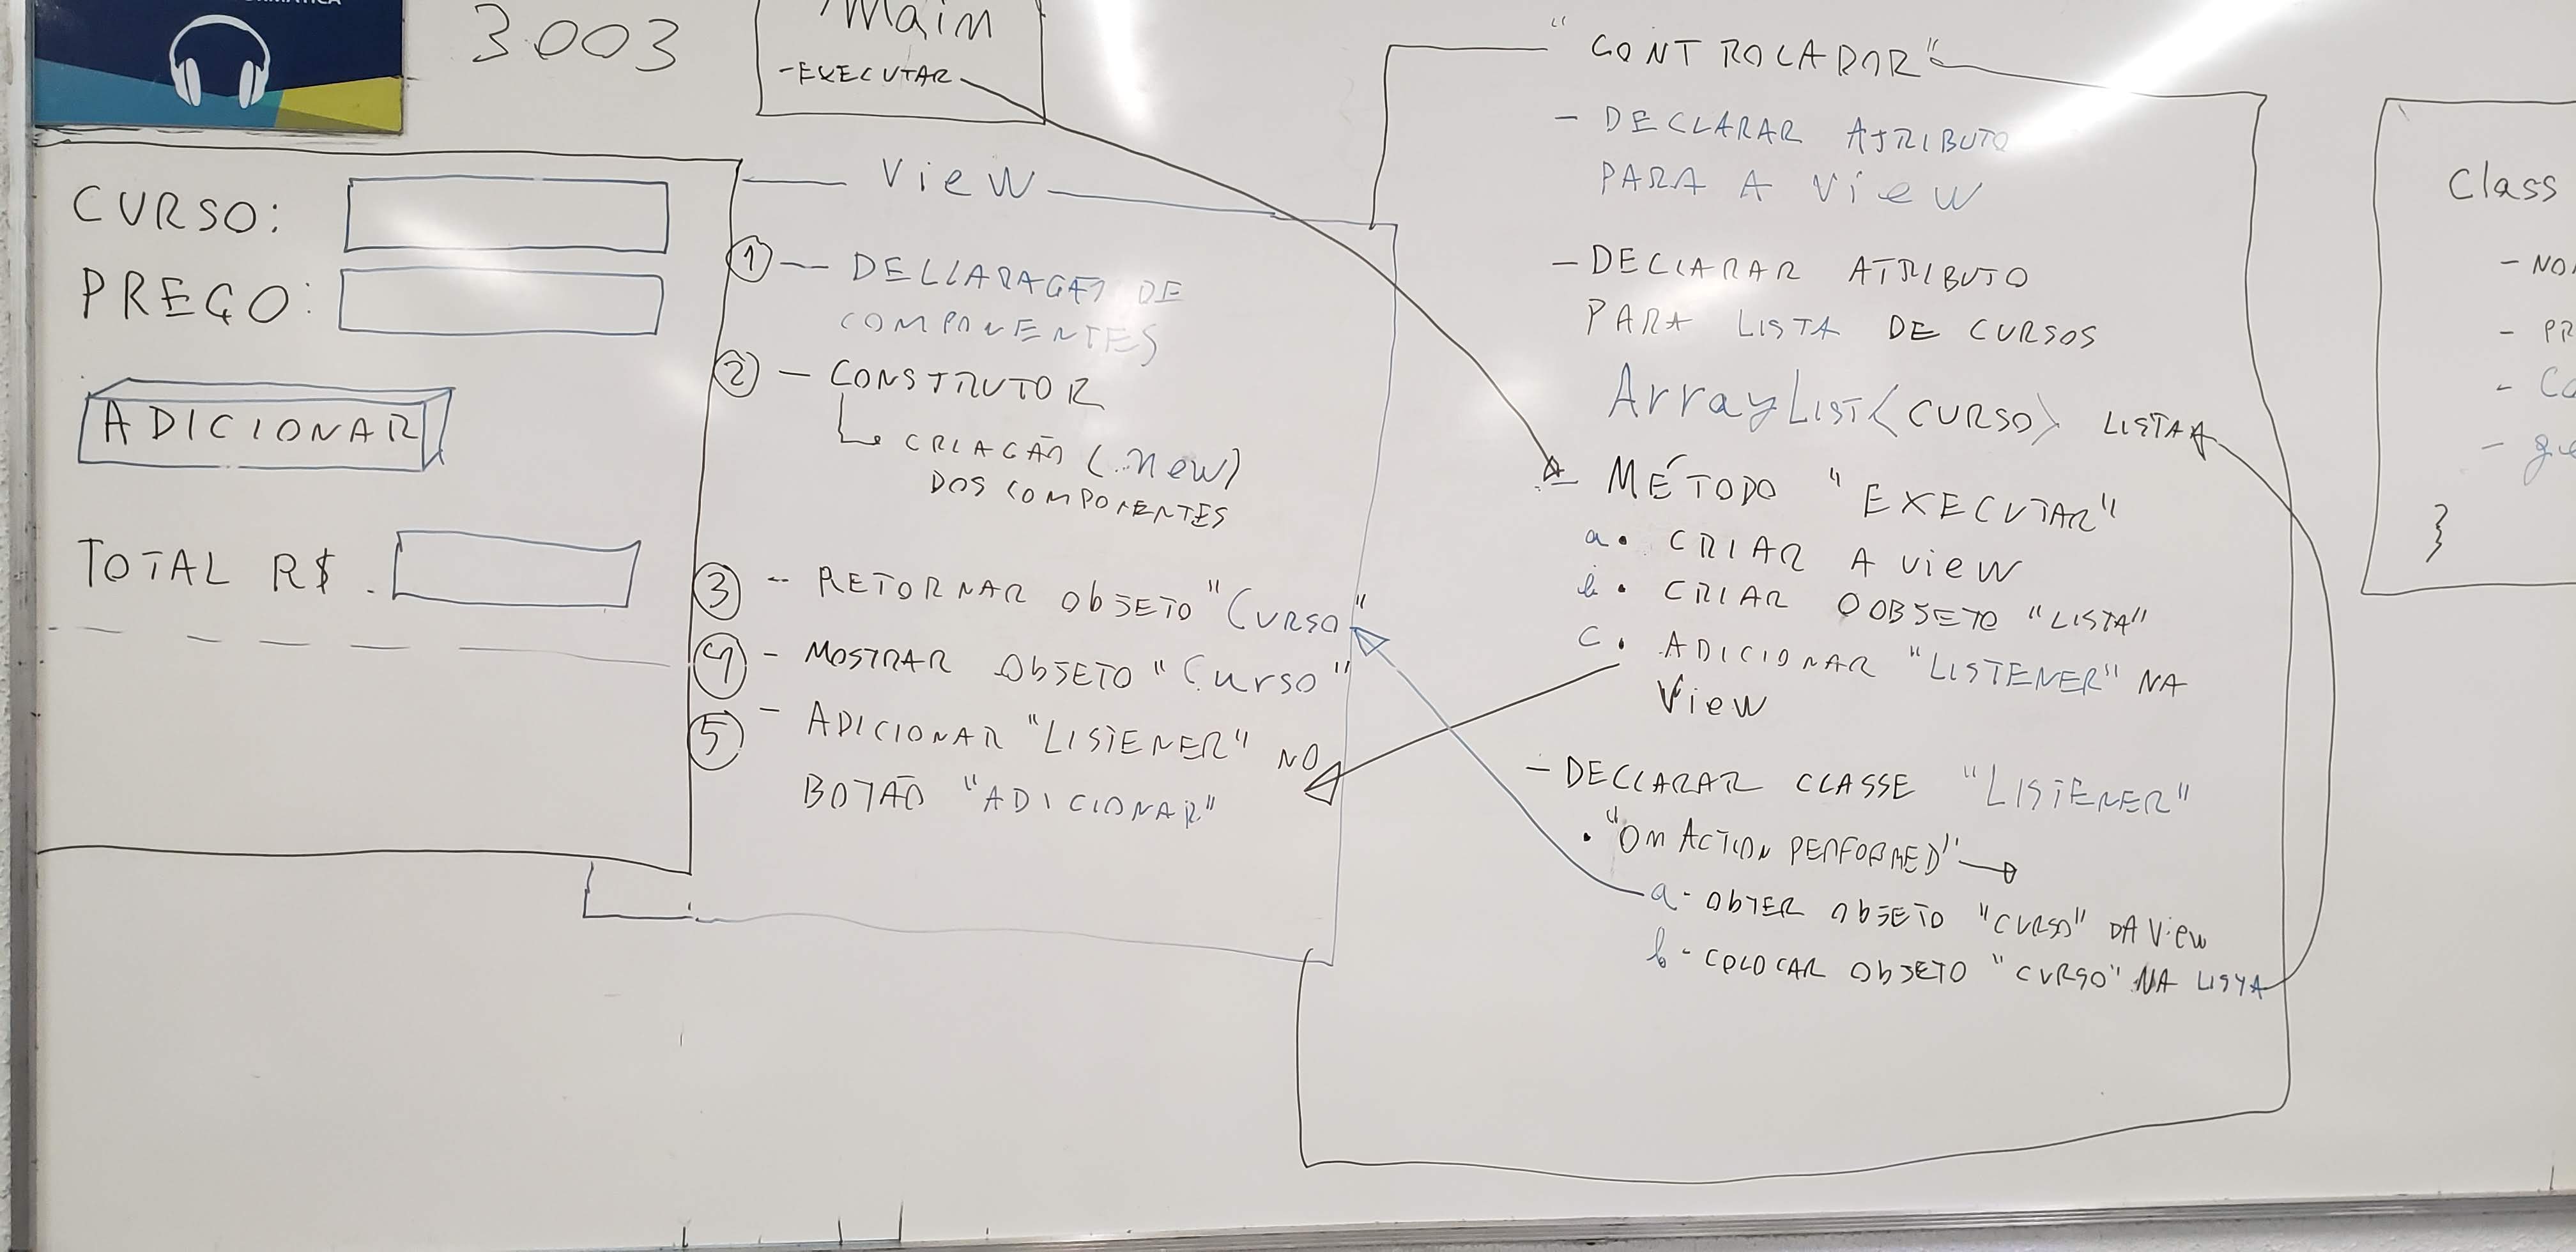 3003
Main
-EXECUTAR
CURSO:
PREÇO:
ADICIONAR
TOTAL R$.
View
1 - DECLARAÇÃO DE
COMPONENTES
2 - CONSTRUTOR
CRIAÇÃO (.new)
DOS COMPONENTES
3 - RETORNAR ObJETO "CURSO"
4 - MOSTRAR ObJETO "Curso"
5 - ADICIONAR "LISTENER" NO
BOTÃO "ADICIONAR"
"CONTROLADOR"
- DECLARAR ATRIBUTO
PARA A View
- DECLARAR ATRIBUTO
PARA LISTA DE CURSOS
ArrayLIST<CURSO> LISTA
- MÉTODO "EXECUTAR"
a. CRIAR A View
b. CRIAR O OBJETO "LISTA"
c. ADICIONAR "LISTENER" NA
View
- DECLARAR CLASSE "LISTENER"
. "ON ACTION PERFORMED"
a - ObTER ObJETO "CURSO" DA View
b - COLOCAR ObJETO "CURSO" NA LISTA
Class
}